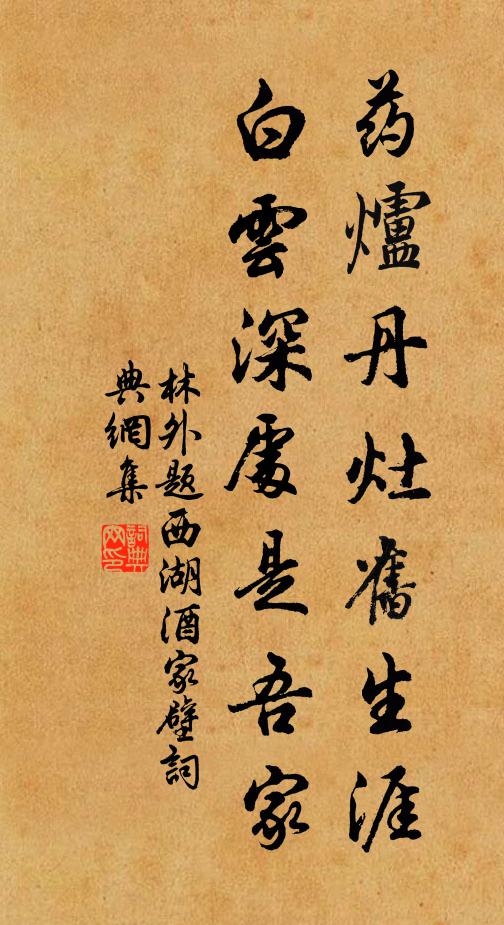 药爐丹灶舊生涯
白雲深處是吾家
林外題西湖酒家壁詞
典網集
詞典网印